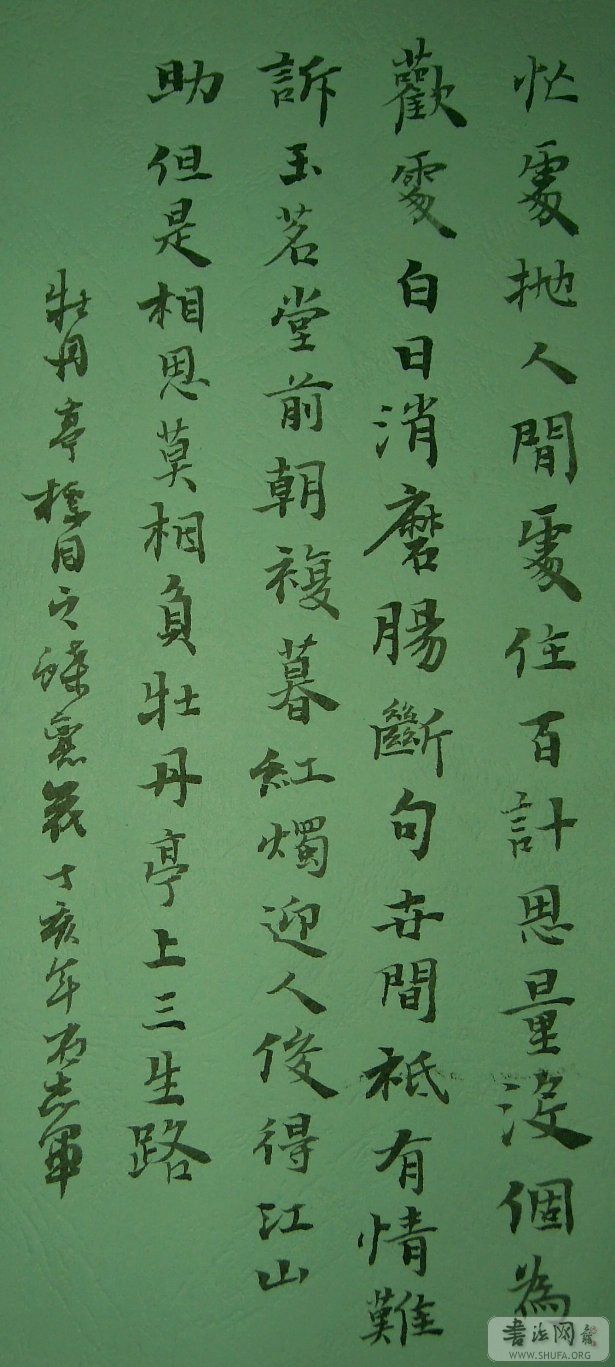 忙處拋人閒處住百計思量沒個為
歡處白日消磨腸斷句世間祗有情難
訴玉茗堂前朝複暮紅燭迎人俊得江山
助但是相思莫相負牡丹亭上三生路
牡丹亭標目之蝶戀花丁亥年石志軍
书法网
WWW.SHUFA.ORG